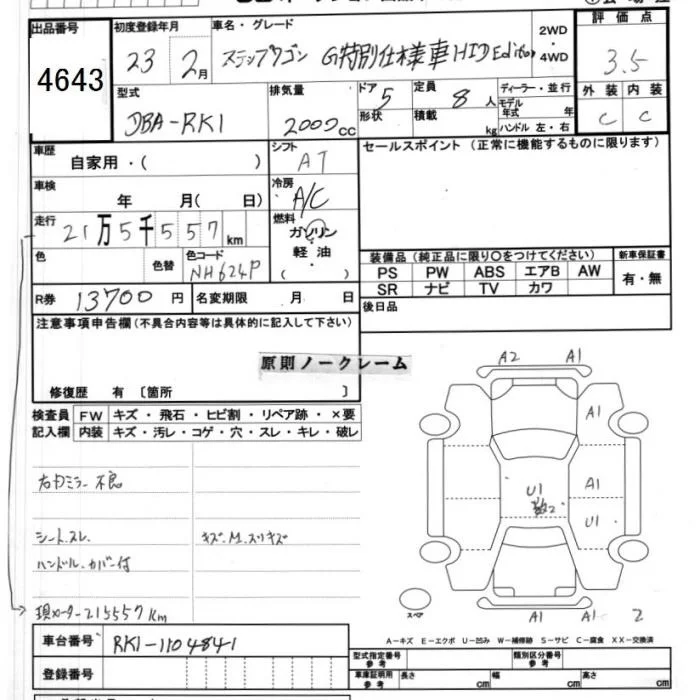 出品番号 初度登録年月 車名・グレード 2WD・4WD 評価点
4643 23 2月 ステップワゴン G特別仕様車HID Edition 3.5
型式 排気量 ドア 5 定員 8人 ディーラー・並行 外装 内装
DBA-RK1 2000cc 形状 積載 kg モデル年式 年 C C
ハンドル 左・右
車歴 自家用・( ) シフト AT セールスポイント(正常に機能するものに限ります)
車検 年 月( 日) 冷房 A/C
走行 21万5千557km 燃料 ガソリン
軽油
( )
色 色替 色コード NH624P 装備品(純正品に限り〇をつけてください) 新車保証書
PS PW ABS エアB AW 有・無
SR ナビ TV カワ
R券 13700円 名変期限 月 日 後日品
注意事項申告欄(不具合内容等は具体的に記入して下さい)
原則ノークレーム
修復歴 有 〔箇所 〕
検査員 FW キズ・飛石・ヒビ割・リペア跡・×要
記入欄 内装 キズ・汚レ・コゲ・穴・スレ・キレ・破レ
A2 A1
A1
右ウミラー不良
U1 A1
数2 U1
シートスレ キズ.M.スリキズ
ハンドル.カバー付
現メーター215557km
スペア A1 A1 2
A-キズ E-エクボ U-凹み W-補修跡 S-サビ C-腐食 XX-交換済
車台番号 RK1-1104841
型式指定番号 参考 類別区分番号 参考
登録番号 車庫証明用 参考 長さ cm 幅 cm 高さ cm